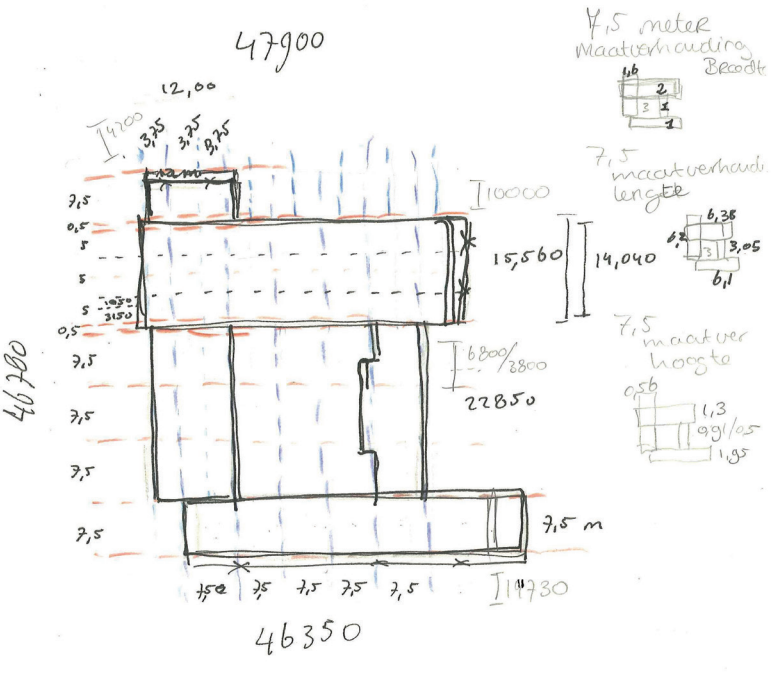 47900
12,00
4200
3,75 3,75 3,75
12 m
7,5
0,5
5
5
5
1050
3150
0,5
7,5
7,5
7,5
7,5
46780
10000
15,560
14,040
6800/3800
22850
7,5 m
7,50 7,5 7,5 7,5 7,5
46350
7,5 meter
Maatverhouding
Breedte
1,6
2
3 1
1
7,5
maatverhoudi
lengte
6,38
6,2
3 3,05
6,1
7,5
maatver
hoogte
0,56
1,3
0,91/0,5
1,95